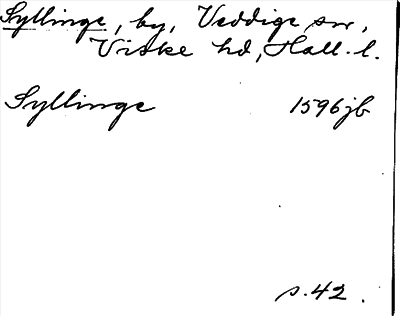 Syllinge, by, Veddige sn,
Viske hd, Hall. l.
Syllinge 1596 jb
s. 42.